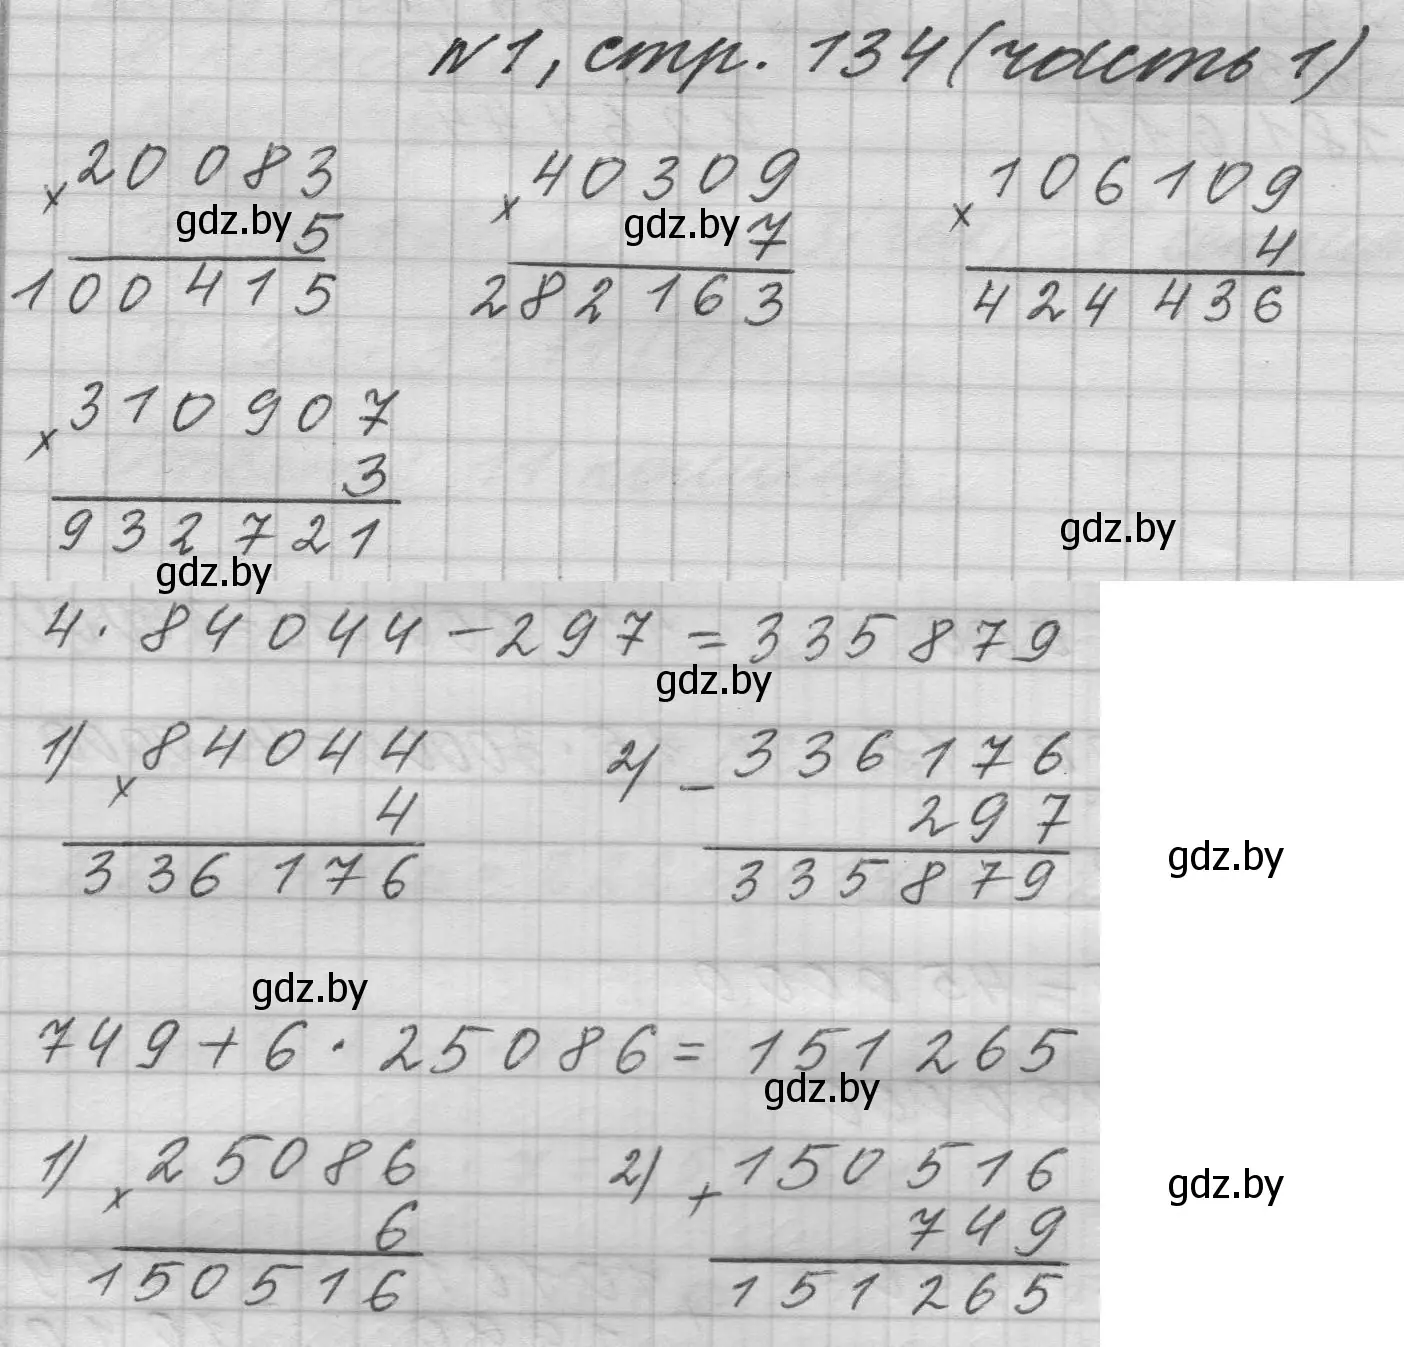 №1, стр. 134 (часть 1)
× 20083
gdz.by 5
100415
× 40309
gdz.by 7
282163
× 106109
4
424436
× 310907
3
932721
gdz.by
gdz.by
4·84044-297=335879
gdz.by
1) × 84044
4
336176
2) - 336176
297
335879
gdz.by
gdz.by
749+6·25086=151265
gdz.by
1) × 25086
6
150516
2) + 150516
749
151265
gdz.by